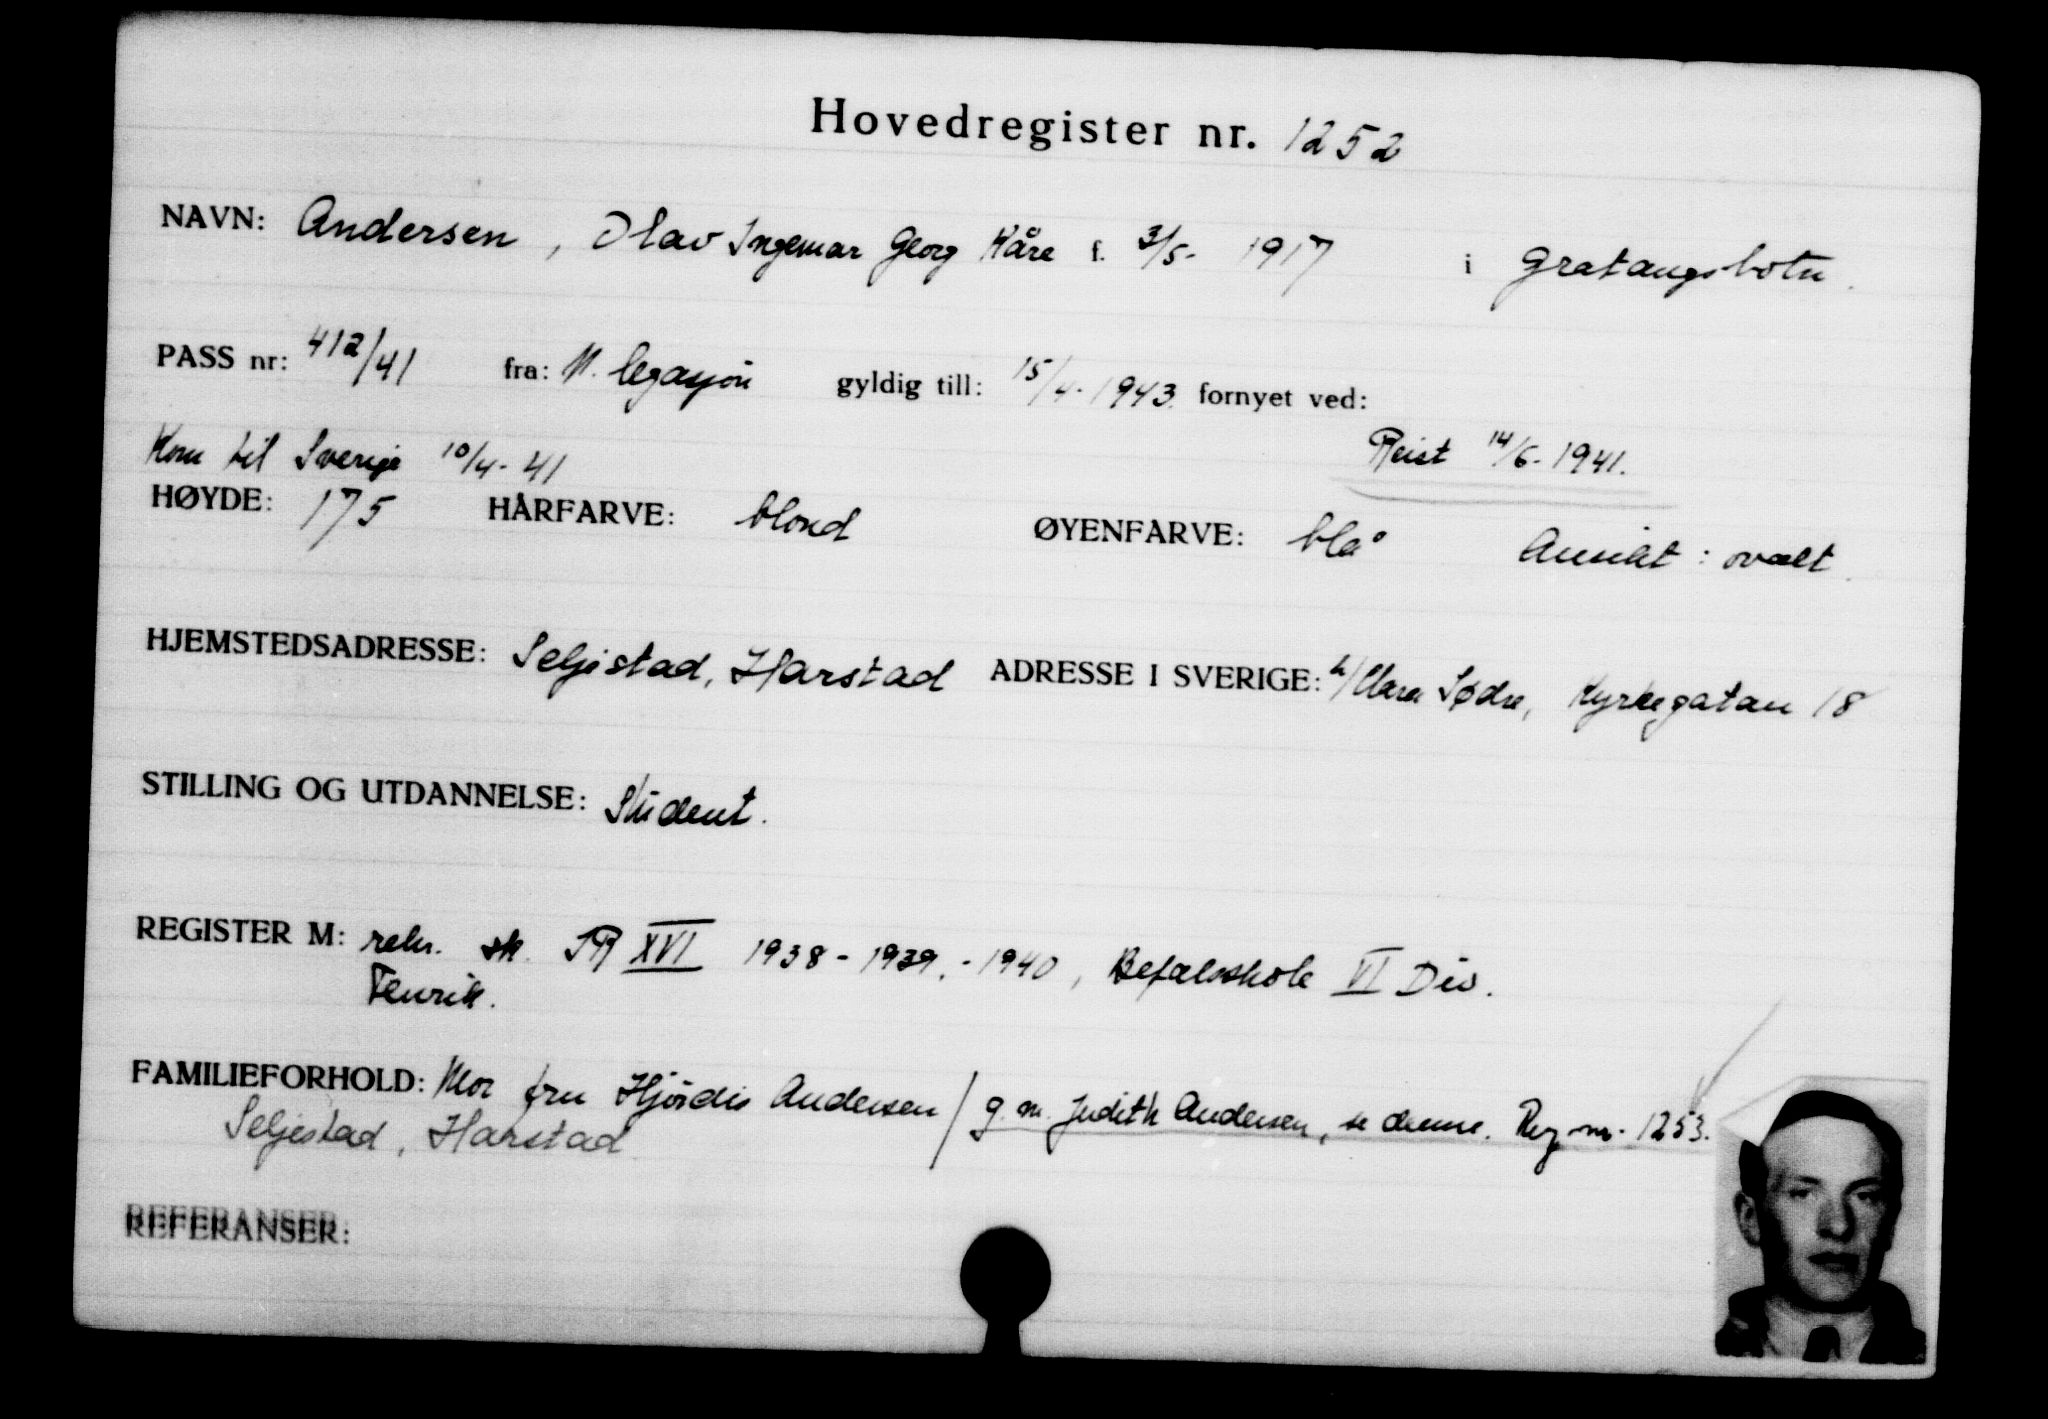 Hovedregister nr. 1252
NAVN: Andersen, Olav Ingemar Georg Kåre f. 3/5- 1917 i Gratangsbotn.
PASS nr: 412/41 fra: N. legasjon gyldig till: 15/4-1943. fornyet ved:
Kom til Sverige 10/4-41 Reist 14/6-1941.
HØYDE: 175 HÅRFARVE: blond ØYENFARVE: blå Ansikt: ovalt.
HJEMSTEDSADRESSE: Seljestad, Harstad ADRESSE I SVERIGE: Clara Södra, Kyrkogatan 18
STILLING OG UTDANNELSE: Student.
REGISTER M: rekr. sk. IR XVI 1938-1939.-1940, Befalsskole VI Div.
Fenrik.
FAMILIEFORHOLD: Mor fru Hjørdis Andersen / g. m. Judith Andersen, se denne. Reg. nr. 1253.
Seljestad, Harstad
REFERANSER: